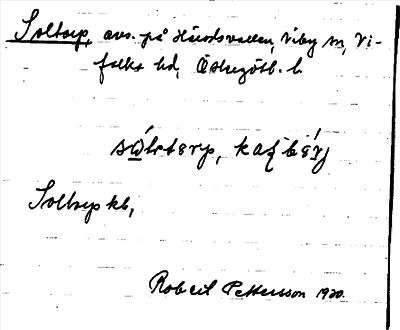 Soltorp, avs. på Häradsvallen, Viby sn, Vi-
folka hd, Östergötl. l.
Soltorp kb,
Robert Pettersson 1920.